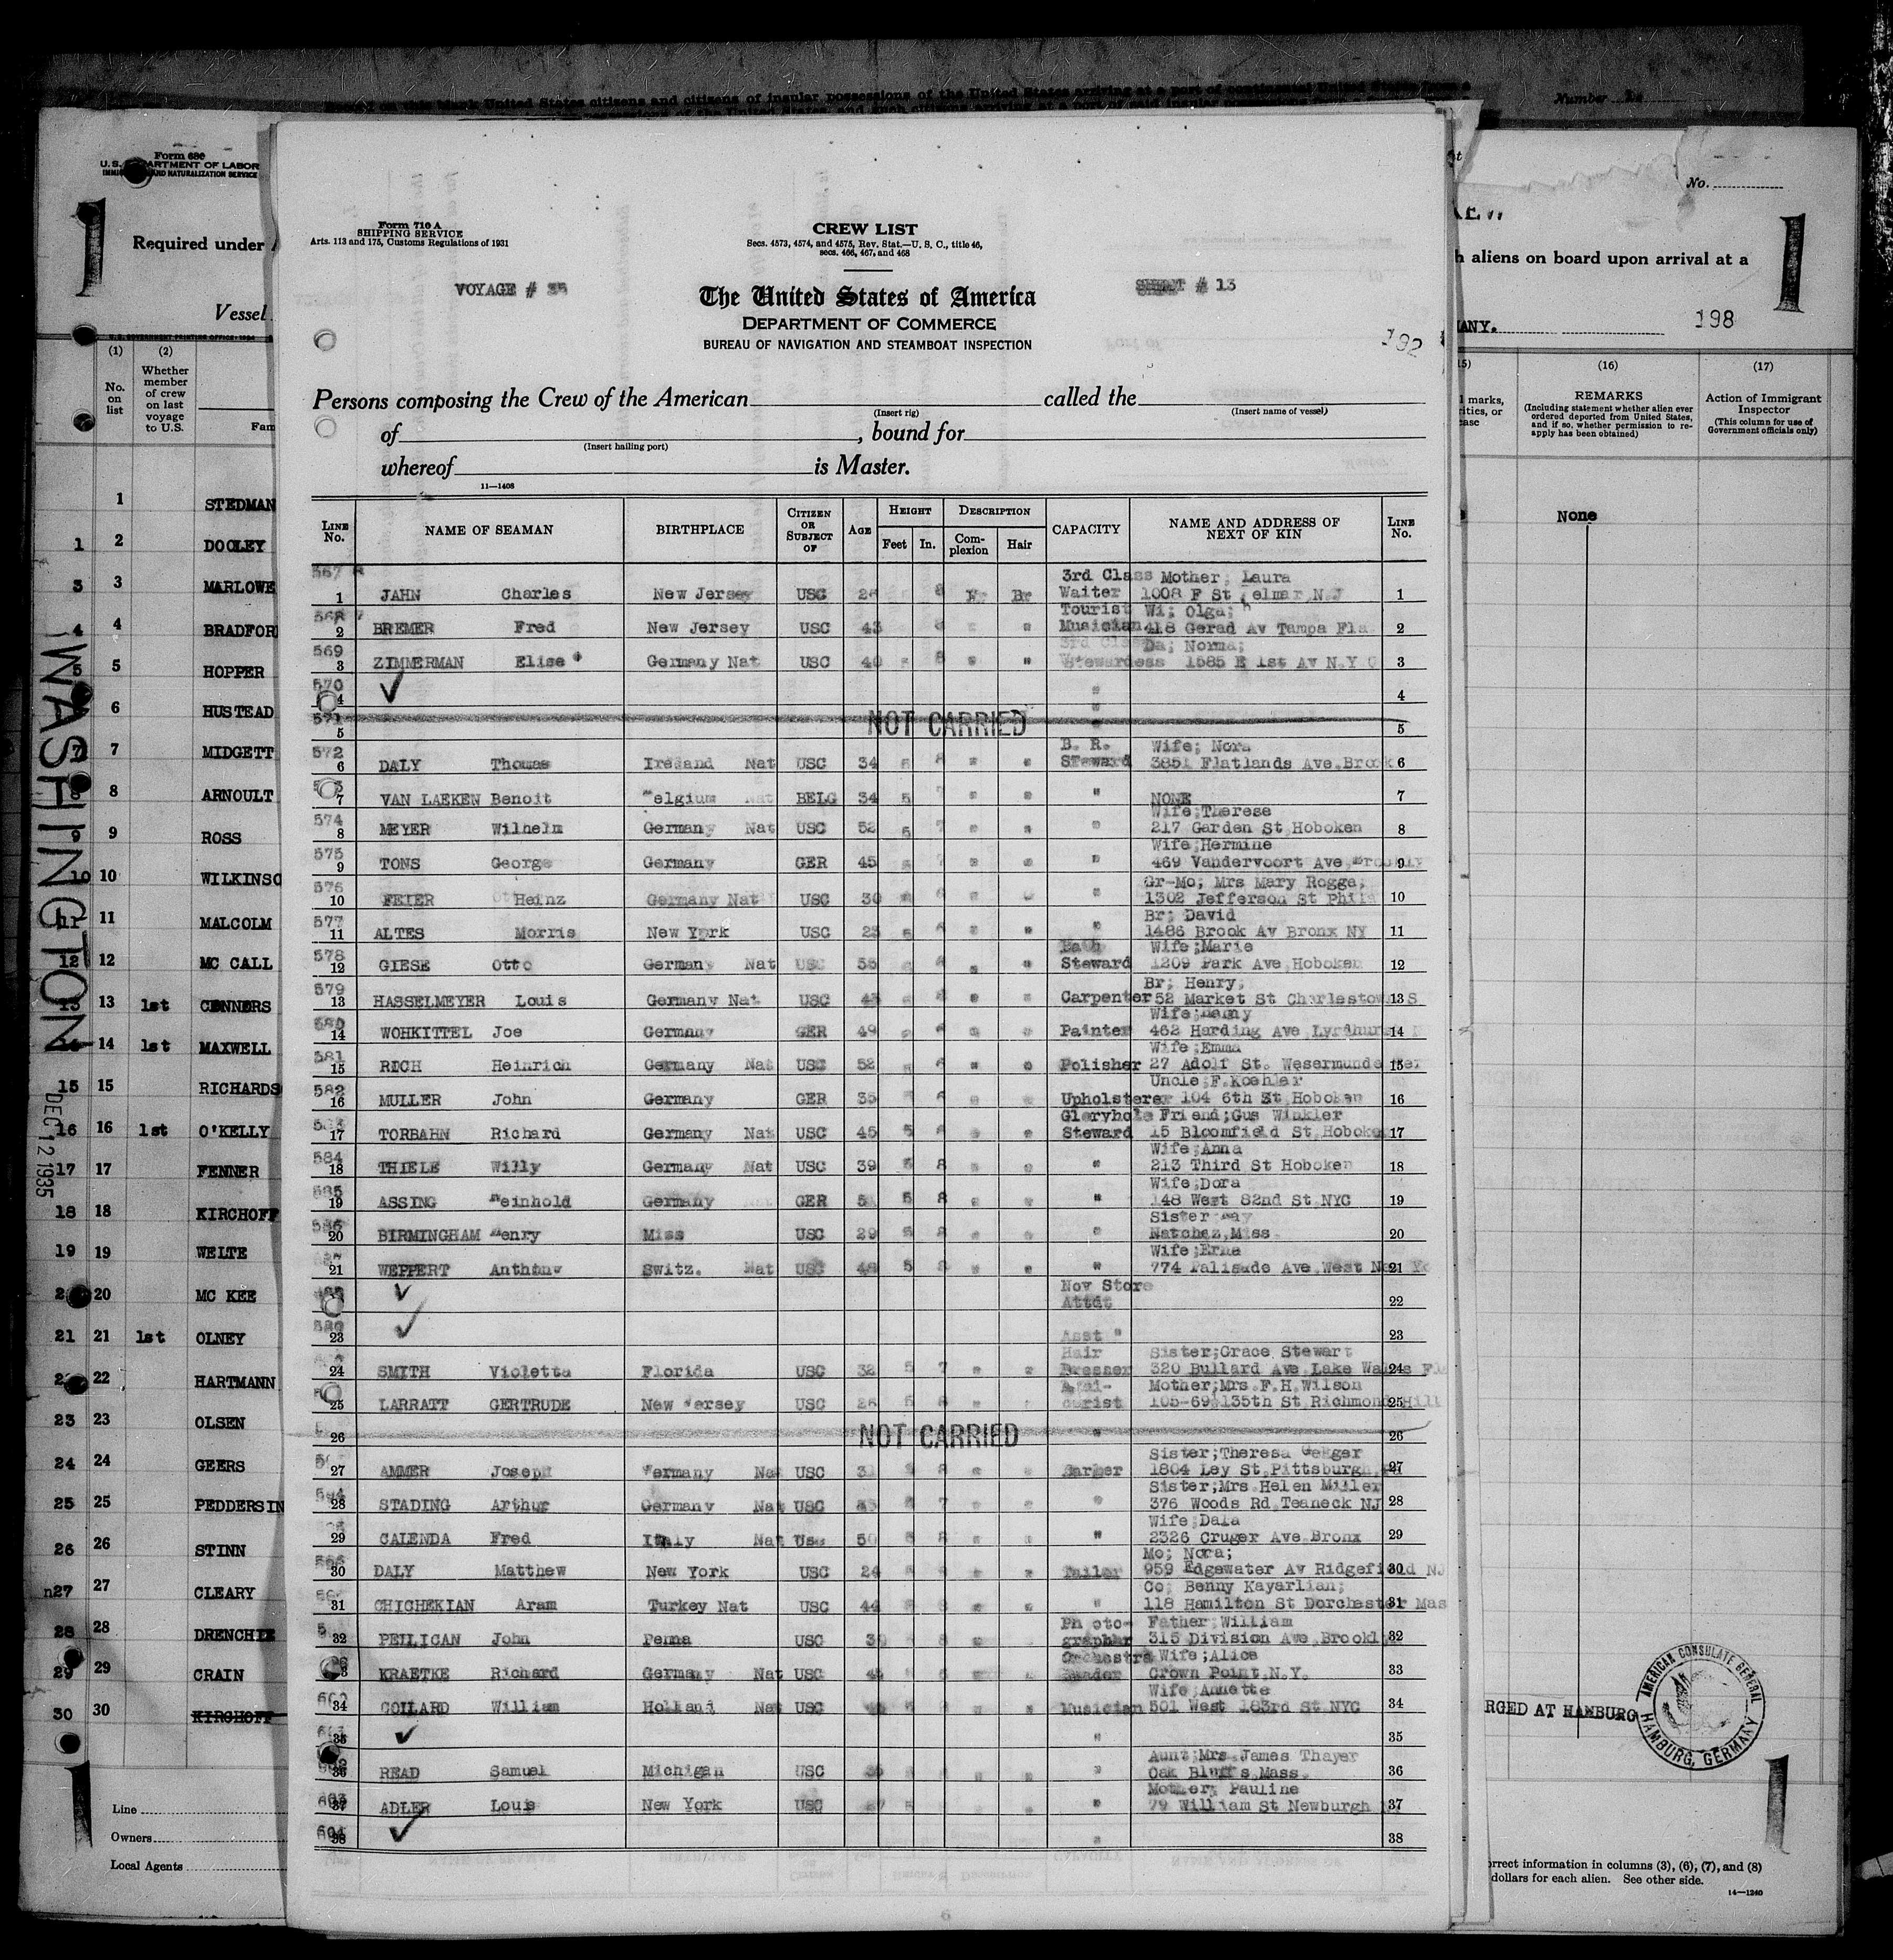 Form 680
U.S. DEPARTMENT OF LABOR
IMMIGRATION AND NATURALIZATION SERVICE
1
Required under
Vessel
U. S. GOVERNMENT PRINTING OFFICE: 1934
(1) (2)
No. on list
Whether member of crew on last voyage to U.S.
Fam
1 STEDMAN
1 2 DOOLEY
3 3 MARLOWE
4 4 BRADFOR
5 5 HOPPER
6 HUSTEAD
7 7 MIDGETT
8 8 ARNOULT
9 9 ROSS
10 10 WILKINSO
11 11 MALCOLM
12 12 MC CALL
13 13 1st CONNORS
14 1st MAXWELL
15 15 RICHARDS
16 16 1st O'KELLY
17 17 FENNER
18 18 KIRCHOFF
19 19 WELTE
20 MC KEE
21 21 1st OLNEY
22 HARTMANN
23 23 OLSEN
24 24 GEERS
25 25 PEDDERSIN
26 26 STINN
n27 27 CLEARY
28 28 DRENCHIK
29 29 CRAIN
30 30 KIRCHOFF
WASHINGTON
DEC 12 1935
Line
Owners
Local Agents
Form 710 A
SHIPPING SERVICE
Arts. 113 and 175, Customs Regulations of 1931
CREW LIST
Secs. 4573, 4574, and 4575, Rev. Stat.—U. S. C., title 46,
secs. 466, 467, and 468
VOYAGE # 35
SHEET # 13
The United States of America
DEPARTMENT OF COMMERCE
BUREAU OF NAVIGATION AND STEAMBOAT INSPECTION
192
Persons composing the Crew of the American called the
(Insert rig) (Insert name of vessel)
of , bound for
(Insert hailing port)
whereof is Master.
11—1408
LINE No. NAME OF SEAMAN BIRTHPLACE CITIZEN OR SUBJECT OF AGE HEIGHT Feet In. DESCRIPTION Complexion Hair CAPACITY NAME AND ADDRESS OF NEXT OF KIN LINE No.
567 3rd Class Mother; Laura
1 JAHN Charles New Jersey USC 8 Br Waiter 1008 F St elmar N.J 1
568 Tourist Wi; Olga;
2 BREMER Fred New Jersey USC 43 " Musician 418 Gerad Av Tampa Fla 2
569 3rd Class Da; Norma;
3 ZIMMERMAN Elise Germany Nat USC 40 8 " " Stewardess 1585 E 1st Av N.Y C 3
570
4 ✓ " 4
571
5 NOT CARRIED " 5
572 B. R. Wife; Nora
6 DALY Thomas Ireland Nat USC 34 5 8 " " Steward 3851 Flatlands Ave.Brook 6
7 VAN LAEKEN Benoit elgium BELG 34 5 7 " " " NONE 7
574 Wife;Therese
8 MEYER Wilhelm Germany Nat USC 52 5 7 " " " 217 Garden St Hoboken 8
575 Wife;Hermine
9 TONS George Germany GER 45 7 " " " 469 Vandervoort Ave Brookly 9
576 Gr-Mo; Mrs Mary Rogge;
10 FEIER Heinz Germany Nat USC 30 " " " 1302 Jefferson St Phila 10
577 Br; David
11 ALTES Morris New York USC 25 " " " 1486 Brook Av Bronx NY 11
578 Bath Wife;Marie
12 GIESE Otto Germany Nat USC 55 " " Steward 1209 Park Ave Hoboken 12
579 Br; Henry;
13 HASSELMEYER Louis Germany Nat USC 43 " " Carpenter 52 Market St Charlestow S 13
580 Wife;
14 WOHKITTEL Joe Germany GER 49 " " Painter 462 Harding Ave Lyndhurs 14
581 Wife;Emma
15 RICH Heinrich Germany Nat USC 52 " " Polisher 27 Adolf St. Wesermunde Ger 15
582 Uncle;F.Koehler
16 MULLER John Germany GER 35 " " Upholsterer 104 6th St Hoboken 16
Gloryhole Friend;Gus Winkler
17 TORBAHN Richard Germany Nat USC 45 5 8 " " Steward 15 Bloomfield St Hoboke 17
584 Wife;Anna
18 THIELE Willy Germany Nat USC 39 5 8 " " " 213 Third St Hoboken 18
585 Wife;Dora
19 ASSING Reinhold Germany GER 5 8 " " " 148 West 82nd St NYC 19
586 Sister
20 BIRMINGHAM Henry Miss USC 29 5 8 " " " Natchez,Miss. 20
Wife;Erna
21 WEPPERT Anthony Switz. Nat USC 48 5 8 " " " 774 Palisade Ave West New Yo 21
✓ Nov Store
Attdt 22
589
23 ✓ Asst " 23
Hair Sister;Grace Stewart
24 SMITH Violetta Florida USC 32 5 7 " " Dresser 320 Bullard Ave Lake Wales Fla 24
Mother;Mrs.F.H.Wilson
25 LARRATT GERTRUDE New Jersey USC 28 5 8 105-69 135th St Richmond Hill 25
26 NOT CARRIED " 26
Sister;Theresa Geiger
27 AMMER Joseph Germany Nat USC " " Barber 1804 Ley St.Pittsburgh 27
Sister;Mrs Helen Miller
28 STADING Arthur Germany Nat USC 7 " " " 376 Woods Rd Teaneck NJ 28
Wife;
29 CALENDA Fred Italy Nat Usc 50 " " " 2326 Cruger Ave Bronx 29
Mo; Nora;
30 DALY Matthew New York USC 24 " " Tailor 959 Edgewater Av Ridgefield NJ 30
Co; Benny Kayarlian;
31 CHICHEKIAN Aram Turkey Nat USC 44 " " " 118 Hamilton St Dorchester Mas 31
Photo- Father;William
32 PELLICAN John Penna USC " " grapher 315 Division Ave Brookl 32
Orchestra Wife;Alice
33 KRAETKE Richard Germany Nat USC Leader Crown Point N.Y. 33
600 Wife;Annette
34 COLLARD William Holland Nat USC " " Musician 501 West 183rd St NYC 34
35 ✓ " 35
Aunt;Mrs.James Thayer
36 READ Samuel Michigan USC " " " Oak Bluffs,Mass. 36
603 Mother; Pauline
37 ADLER Louis New York USC " " " 79 William St Newburgh 37
604
38 ✓ " 38
No.
1
h aliens on board upon arrival at a
MANY.
198
(16) (17)
REMARKS
(Including statement whether alien ever ordered deported from United States, and if so, whether permission to reapply has been obtained)
Action of Immigrant Inspector
(This column for use of Government officials only)
None
RGED AT HAMBURG
AMERICAN CONSULATE GENERAL
HAMBURG, GERMANY
orrect information in columns (3), (6), (7), and (8)
dollars for each alien. See other side.
14—1240